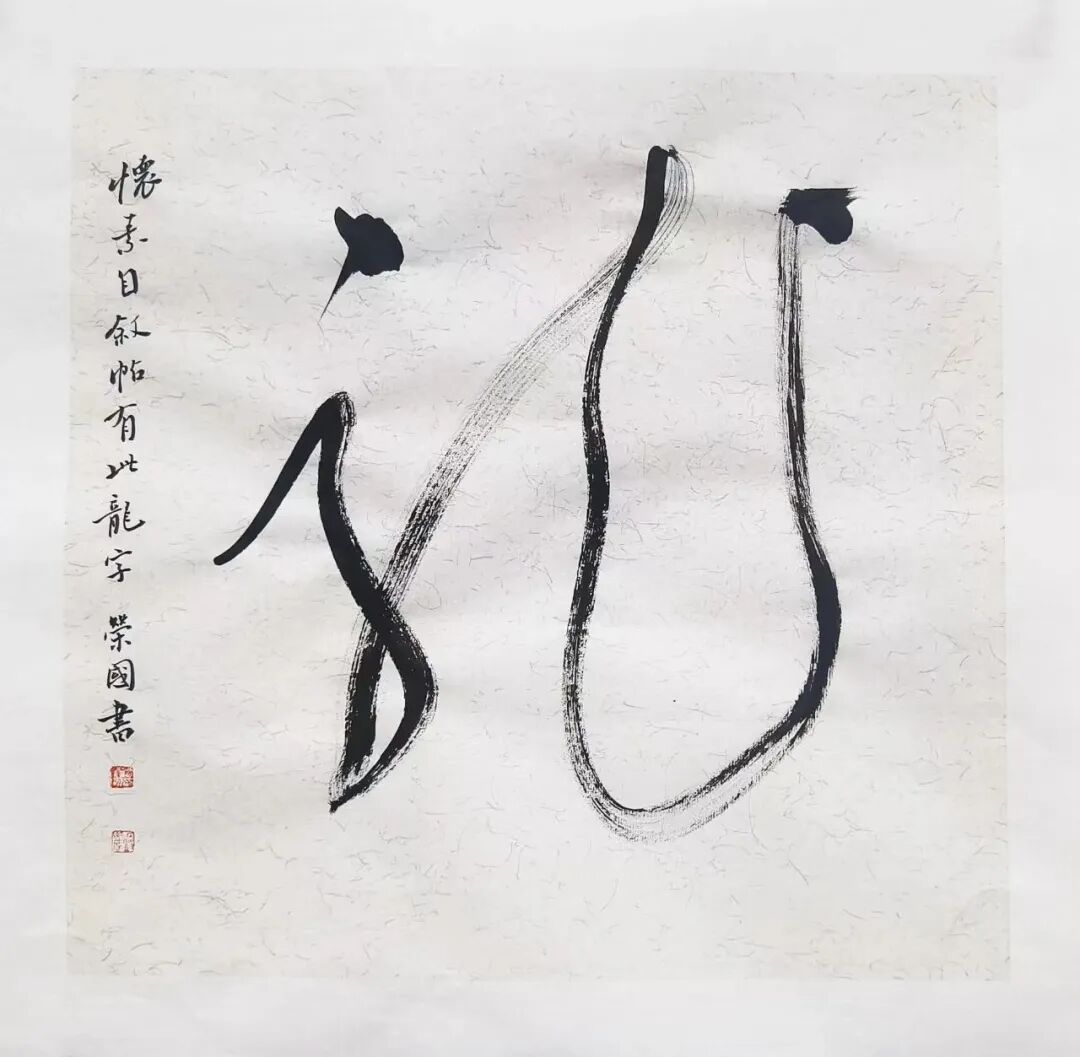 龍
懷素自叙帖有此龍字 榮國書